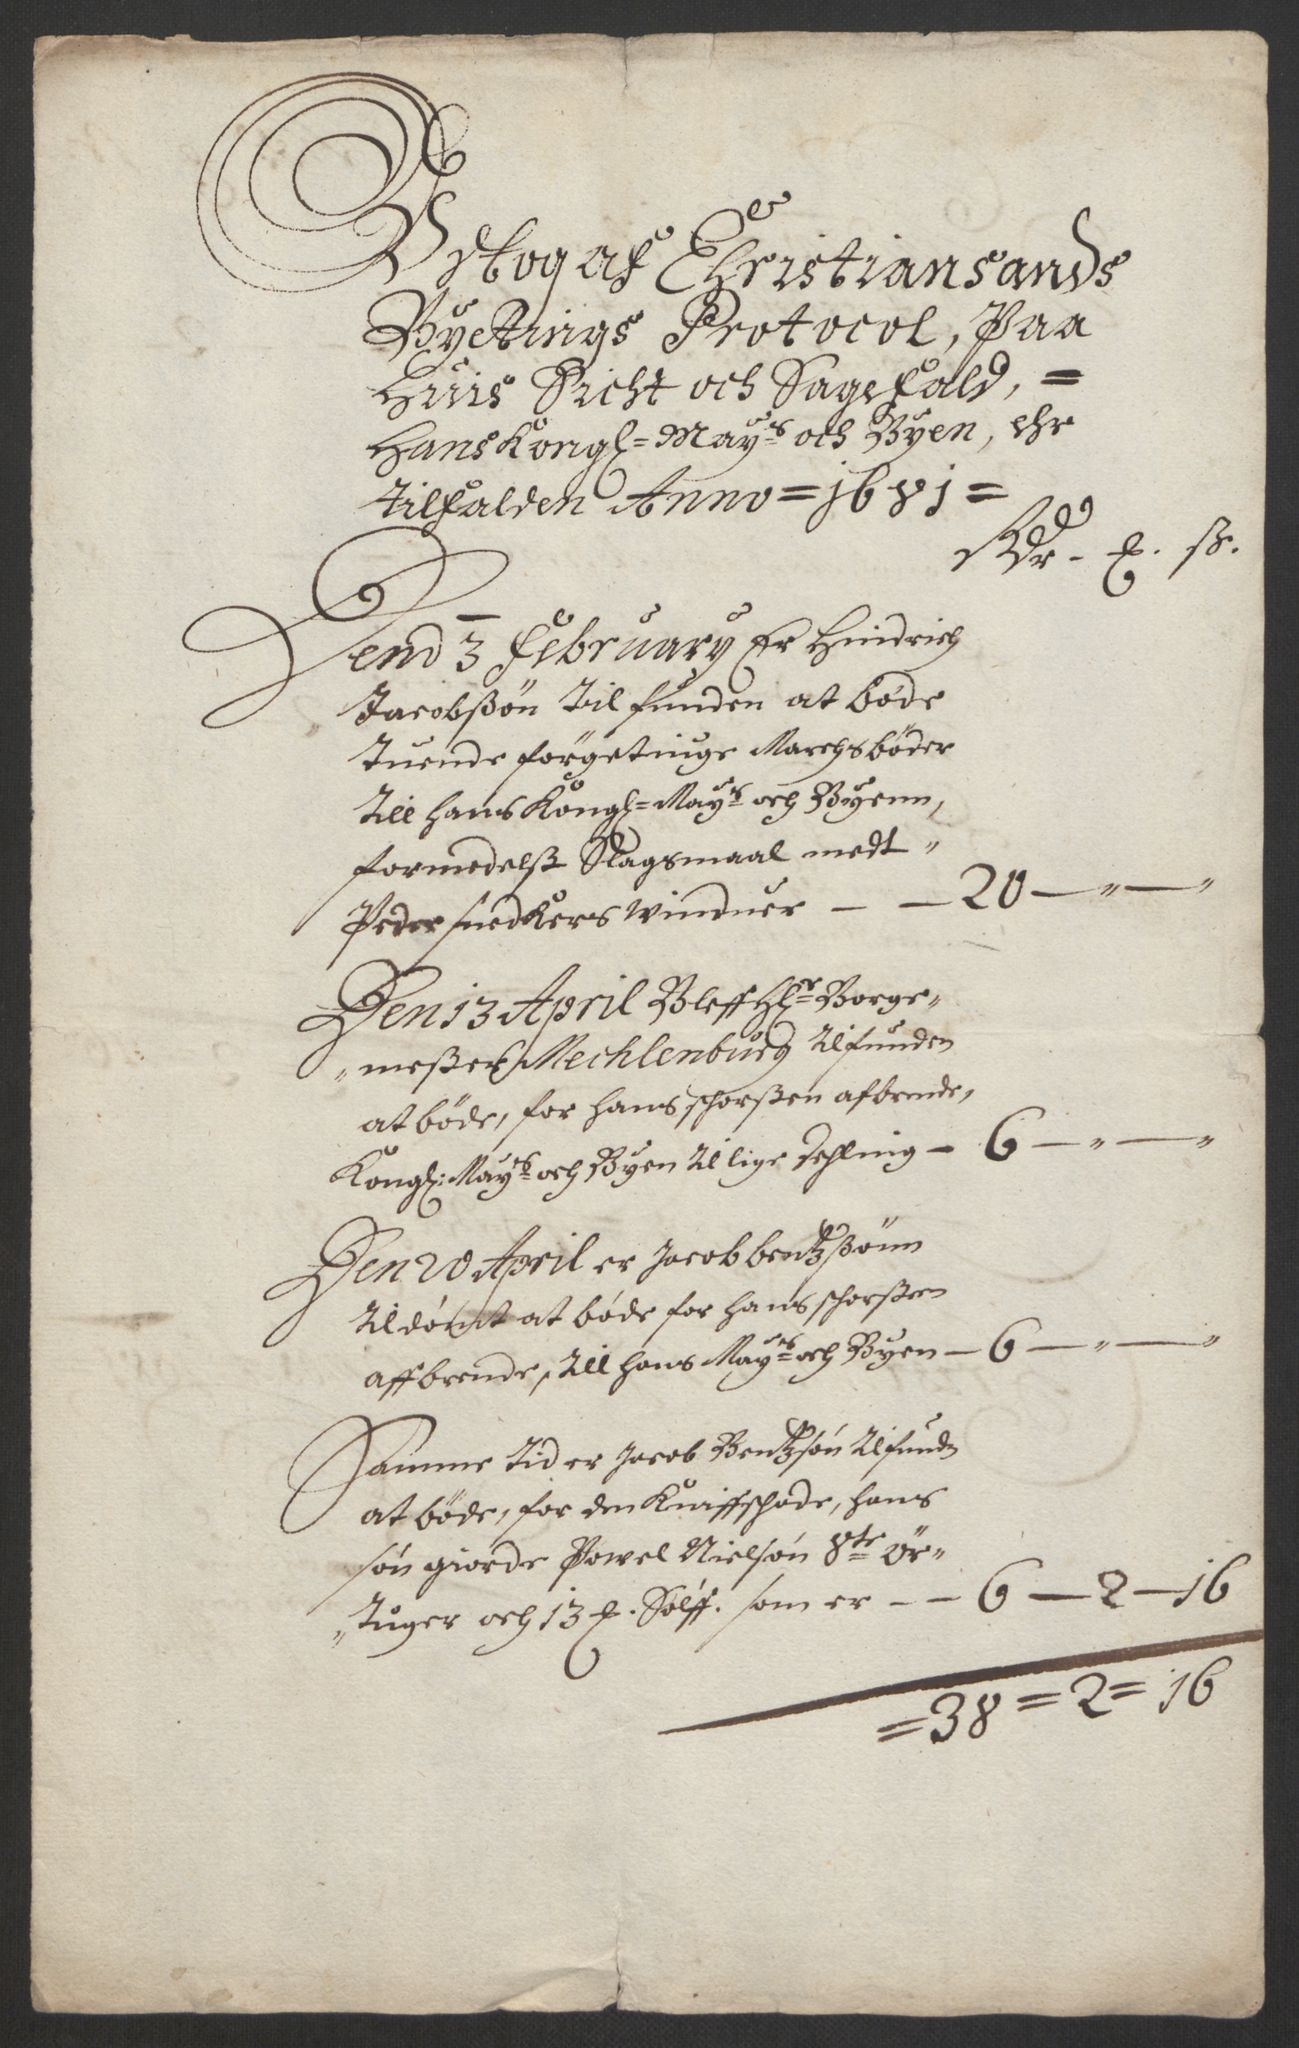 Vdtog af Christiansands
Byetings Protocol, Paa
Huis Sicht och Sagefald, =
Hans Kongl= May:ts och Byen, ehr
tilfalden Anno = 1681 =
Rdr - ℔. ß.
Dend 3 February Er Hindrich
Jacobßøn Til funden at bøde
tuende förgetiuge Marchs bøder
till hans Kongl= May:ts och Byenn,
formedelst Slagsmaal medt "
Peder snedkers Winduer — — 20 — " — "
Den 13 April Bleff Hr: Borge„
„mester Mechlenburg tilfunden
at bøde, for hans schorsten afbrende,
Kongl: May:ts och Byen til lige dehling — 6 — " — "
Den 20 April er Jacob bentzßønn
tildømt at bøde for hans schorsten
affbrende, till hans May:ts och Byen — 6 — " — "
Samme tid er Jacob Bentzsøn tilfunden
at bøde, for den Kniffschade, hans
søn giorde Powel Nielsøn 8te ør„
„tuger och 13 ℔. Sølff. som er — — 6 — 2 — 16
= 38 = 2 = 16